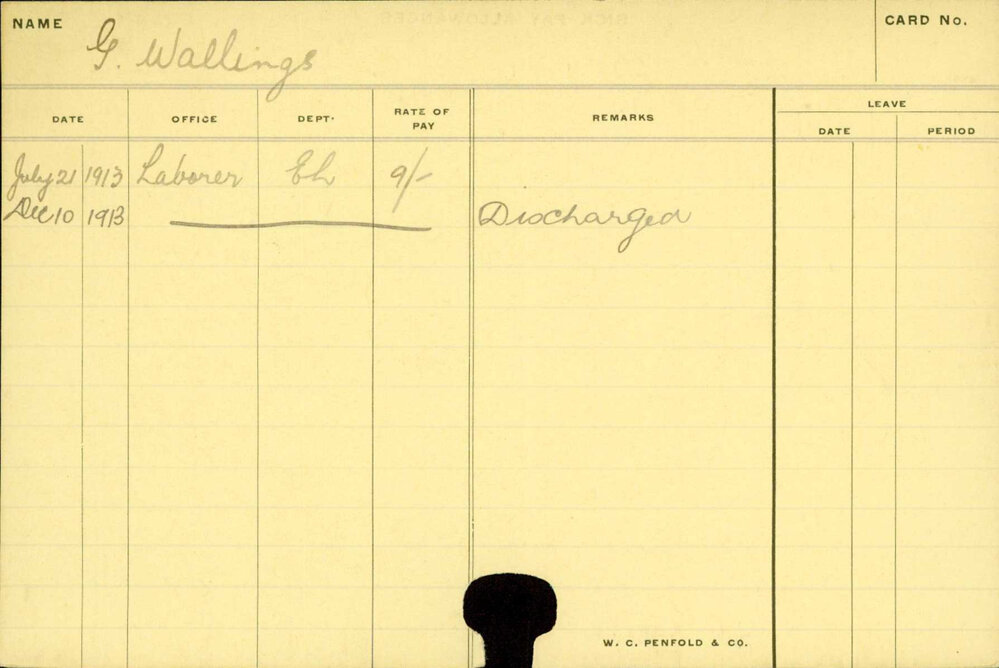 NAME G. Wallings CARD No.
DATE OFFICE DEPT. RATE OF PAY REMARKS LEAVE
DATE PERIOD
July 21 1913 Laborer Eh 9/-
Dec 10 1913 Discharged
W. C. PENFOLD & CO.